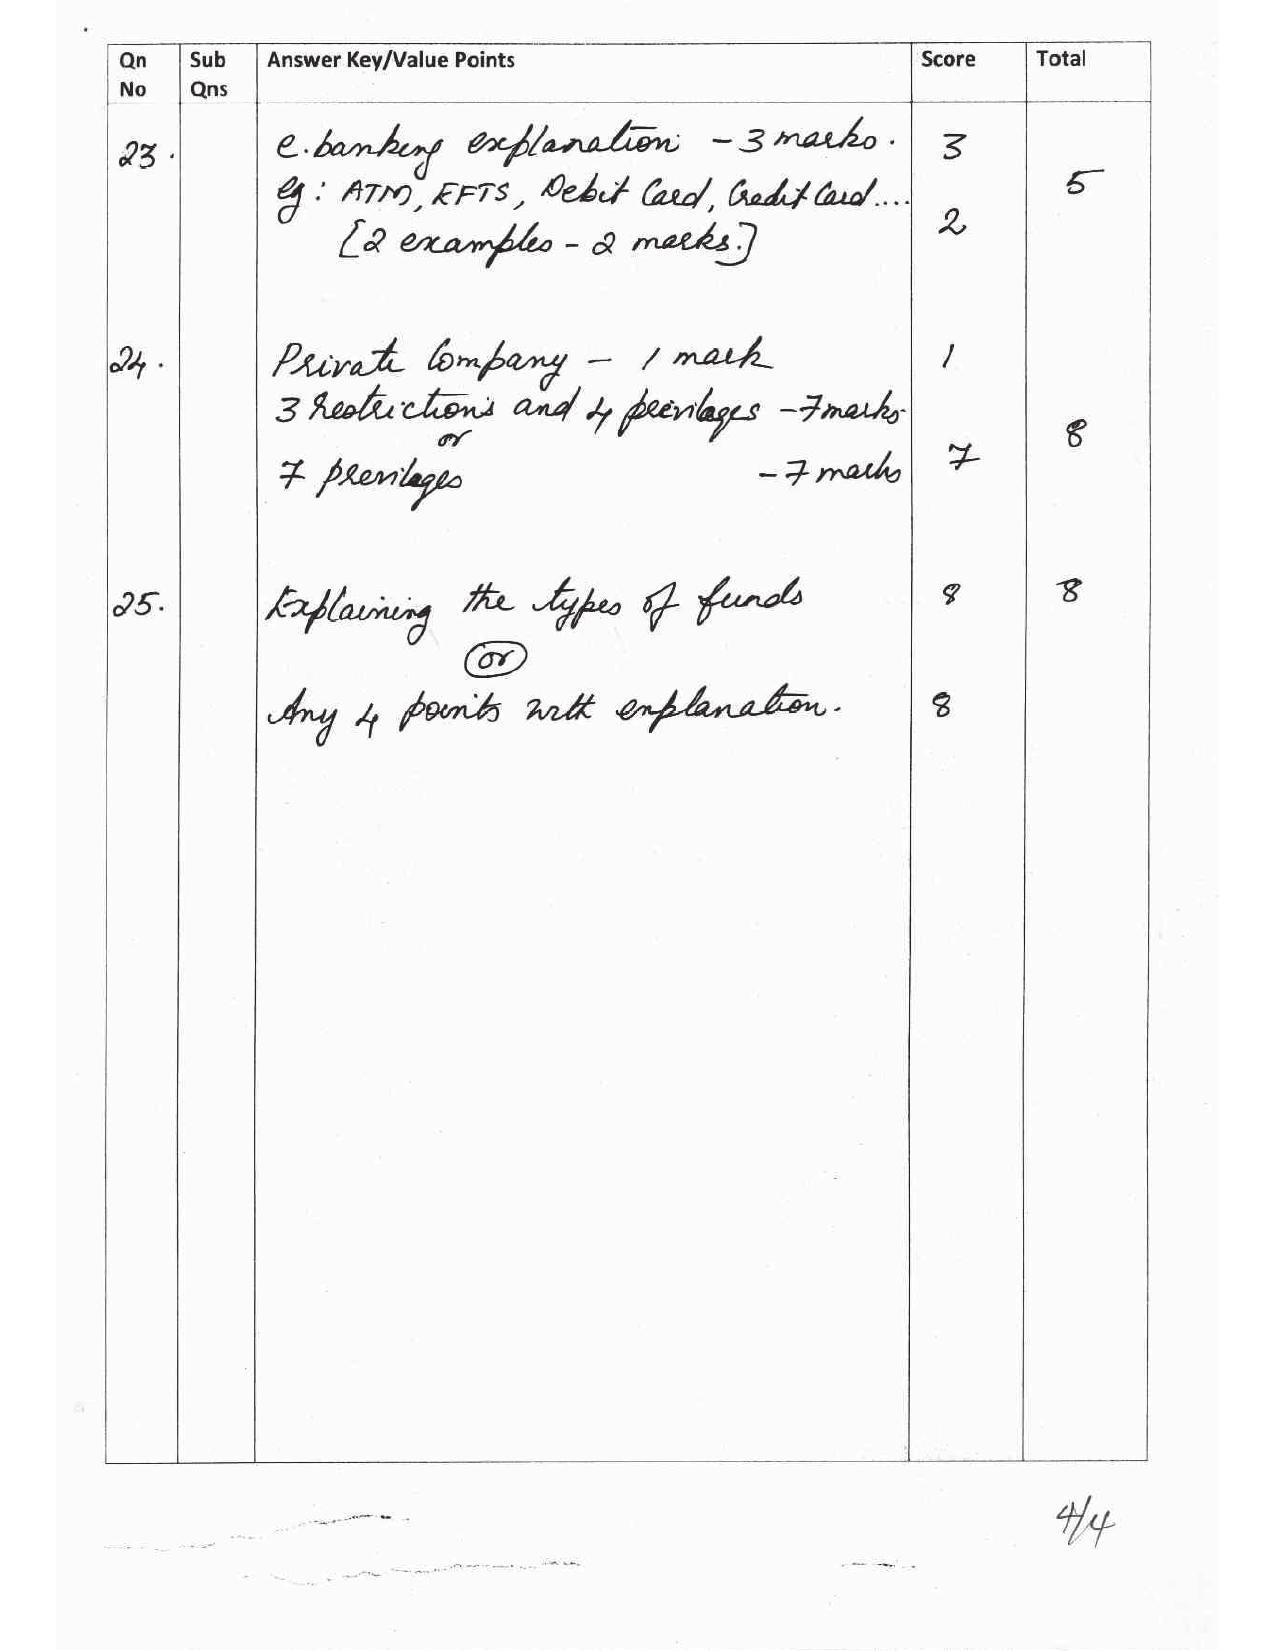 Qn Sub Answer Key/Value Points Score Total
No Qns
23. e.banking explanation - 3 marks. 3
eg: ATM, EFTS, Debit Card, Credit Card.... 5
[2 examples - 2 marks.] 2
24. Private Company - 1 mark 1
3 Restrictions and 4 previlages - 7 marks
or 8
7 previlages - 7 marks 7
25. Explaining the types of funds 8 8
or
Any 4 points with explanation. 8
4/4